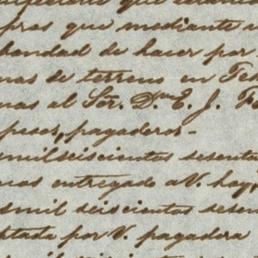 que
pras que mediante
bondad de hacer por
nas de terreno en Te
nas al Sór. Dⁿ E. J. F
pesos, pagaderos-
milseiscientos sesenta
mos entregado a V. hoy,
smil seiscientos sesen
ptada por V. pagadera